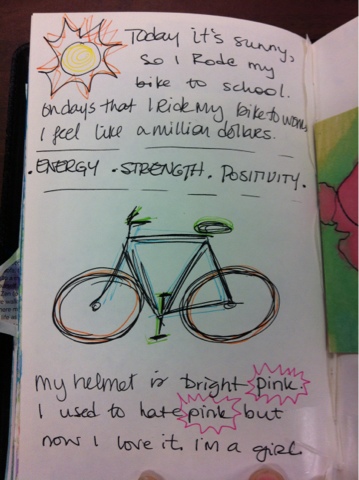 Today it's sunny,
so I Rode my
bike to school.
on days that I Ride my bike to work,
I feel like a million dollars.
. ENERGY . STRENGTH . POSITIVITY .
my helmet is bright pink.
I used to hate pink but
now I love it. I'm a girl.